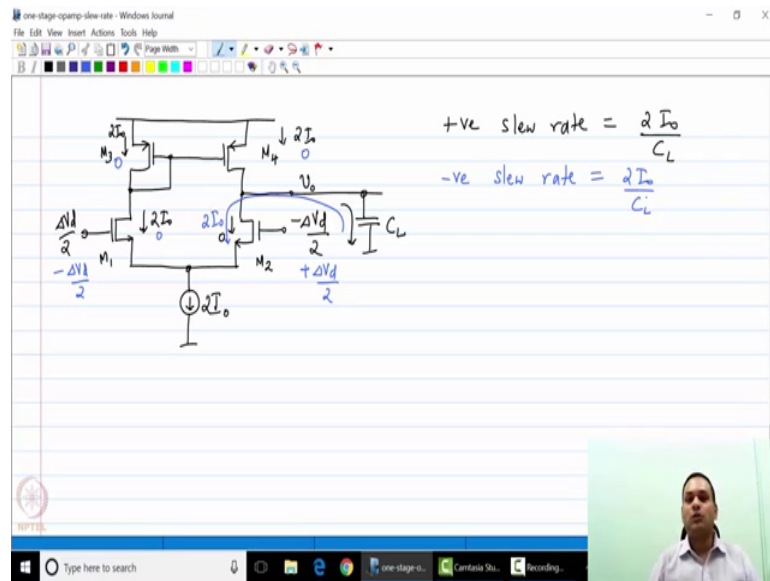 one-stage-opamp-slew-rate - Windows Journal
File Edit View Insert Actions Tools Help
Page Width
B I
2I₀
M₃ 0
↓ 2I₀
M₄ 0
V₀
ΔVd/2
↓ 2I₀
0
2I₀ ↓
0
-ΔVd/2
C_L
M₁
M₂
-ΔVd/2
+ΔVd/2
2I₀
+ve slew rate = 2I₀/C_L
-ve slew rate = 2I₀/C_i
NPTEL
Type here to search
one-stage-o...
Camtasia Stu...
Recording...